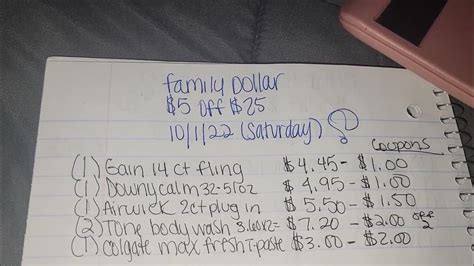 family Dollar
$5 off $25
10/1/22 (Saturday) ?
Coupons
(1) Gain 14 ct fling $4.45 - $1.00
(1) Downy calm 32-51oz $4.95 - $1.00
(1) Airwick 2ct plug in $5.50 - $1.50
(2) Tone body wash $7.20 - $2.00 off 2
(1) Colgate max fresh T-paste $3.00 - $2.00